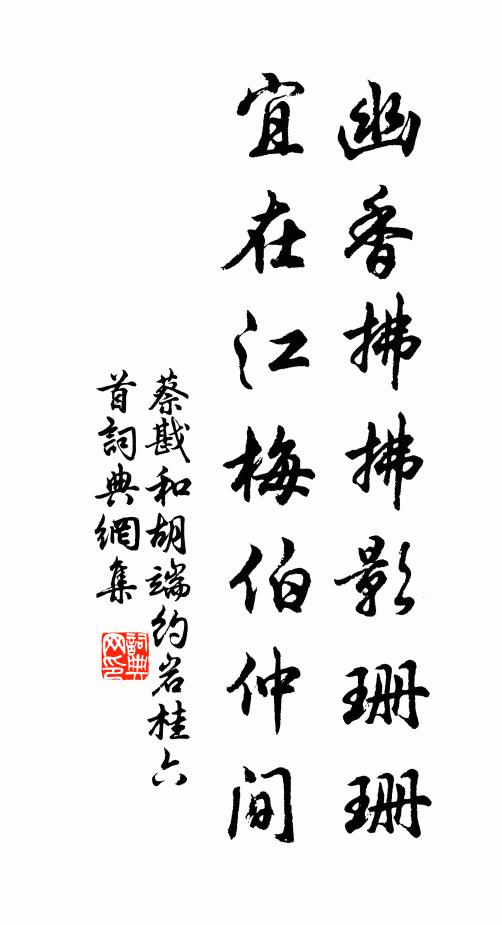 幽香拂拂影珊珊
宜在江梅伯仲間
蔡戡和胡端約岩桂六
首詞典網集
詞典
网印